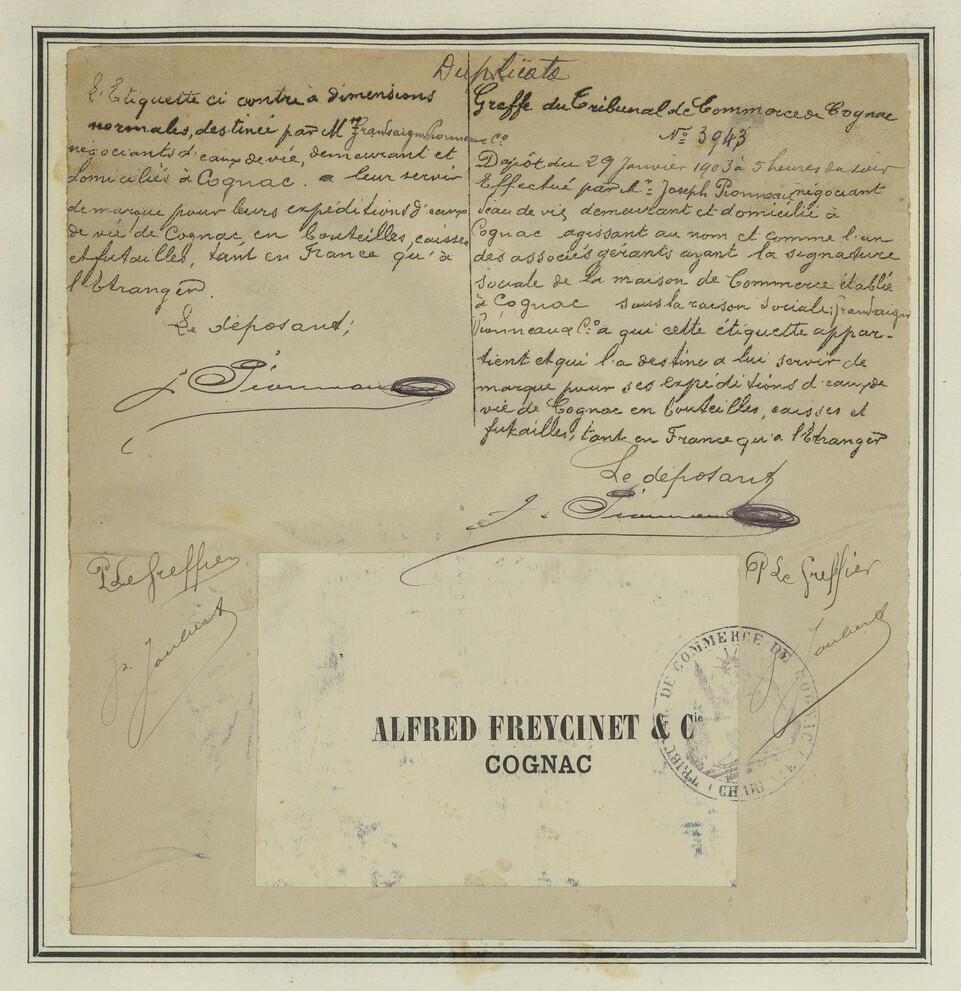 Duplicata
L'Etiquette ci contre à dimensions
normales, destinée par Mrs Fransaigne Pionneau & Co
négociants d'eaux de vie, demeurant et
domiciliés à Cognac. a leur servir
de marque pour leurs expéditions d'eaux
de vie de Cognac en bouteilles, caisses
et futailles, tant en France qu'à
l'Etranger.
Le déposant;
J. Pionneau
Greffe du Tribunal de Commerce de Cognac
No 3943
Dépôt du 29 Janvier 1903 à 5 heures du soir
Effectué par Mr Joseph Pionneau, négociant
d'eau de vie, demeurant et domicilié à
Cognac agissant au nom et comme l'un
des associés gérants ayant la signature
sociale de la maison de Commerce établie
à Cognac sous la raison sociale:
Pionneau & Co a qui cette étiquette appar-
tient et qui l'a destine a lui servir de
marque pour ses expéditions d'eaux de
vie de Cognac en bouteilles, caisses et
futailles, tant en France qu'a l'Etranger
Le déposant
J. Pionneau
P. Le Greffier
Joubert
P. Le Greffier
Joubert
ALFRED FREYCINET & Cie
COGNAC
TRIBL DE COMMERCE DE COGNAC
(CHARENTE)